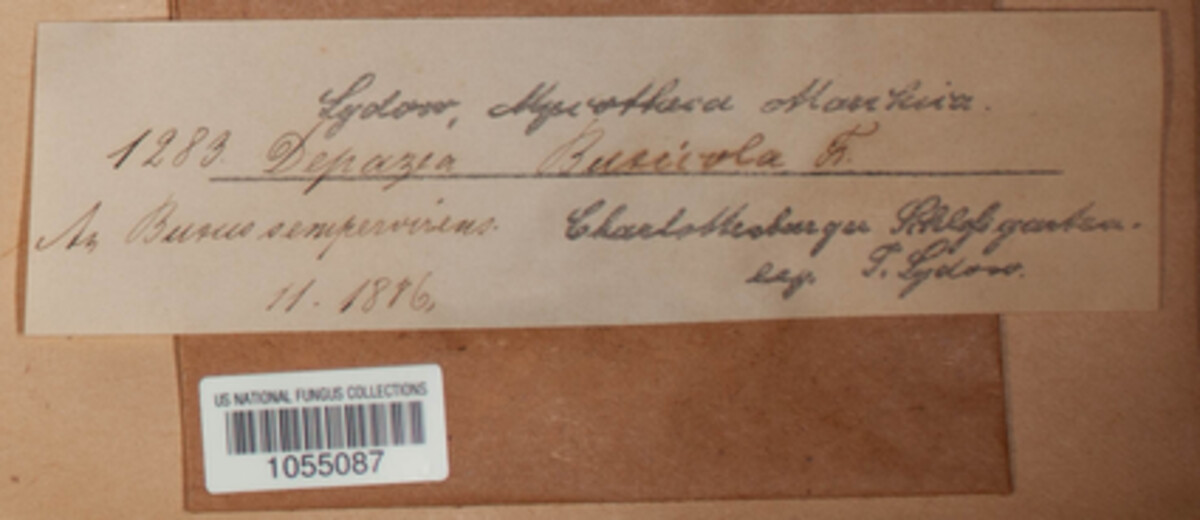 Sydow, Mycotheca Marchica.
1283. Depazea Buxicola F.
An Buxus sempervirens. Charlottenburger Schloßgarten.
11. 1886. leg. P. Sydow.
US NATIONAL FUNGUS COLLECTIONS
1055087